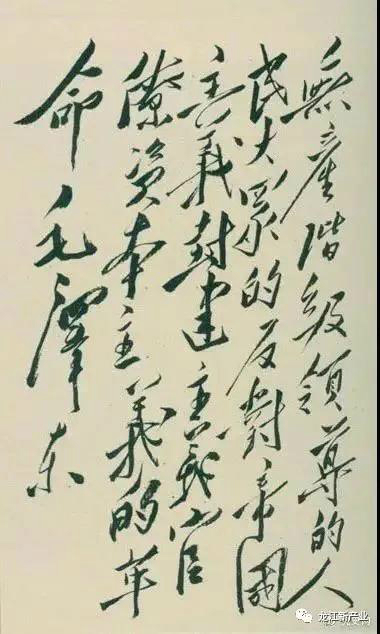 無產階級領導的人
民大眾的反對帝國
主義封建主義官
僚資本主義的革
命毛澤东
龙江新产业